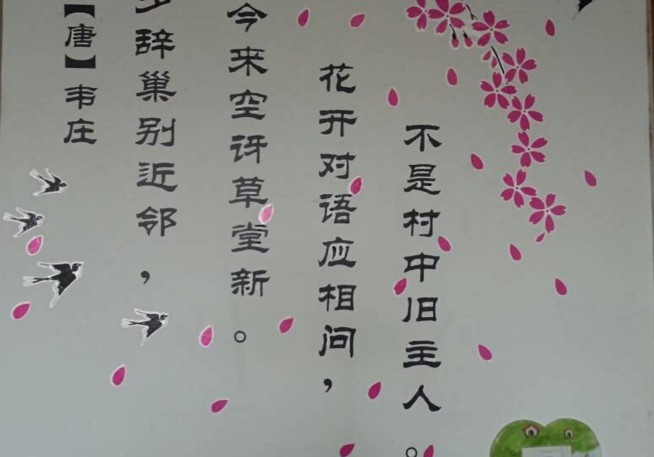 【唐】韦庄
辞巢别近邻，
今来空讶草堂新。
花开对语应相问，
不是村中旧主人。